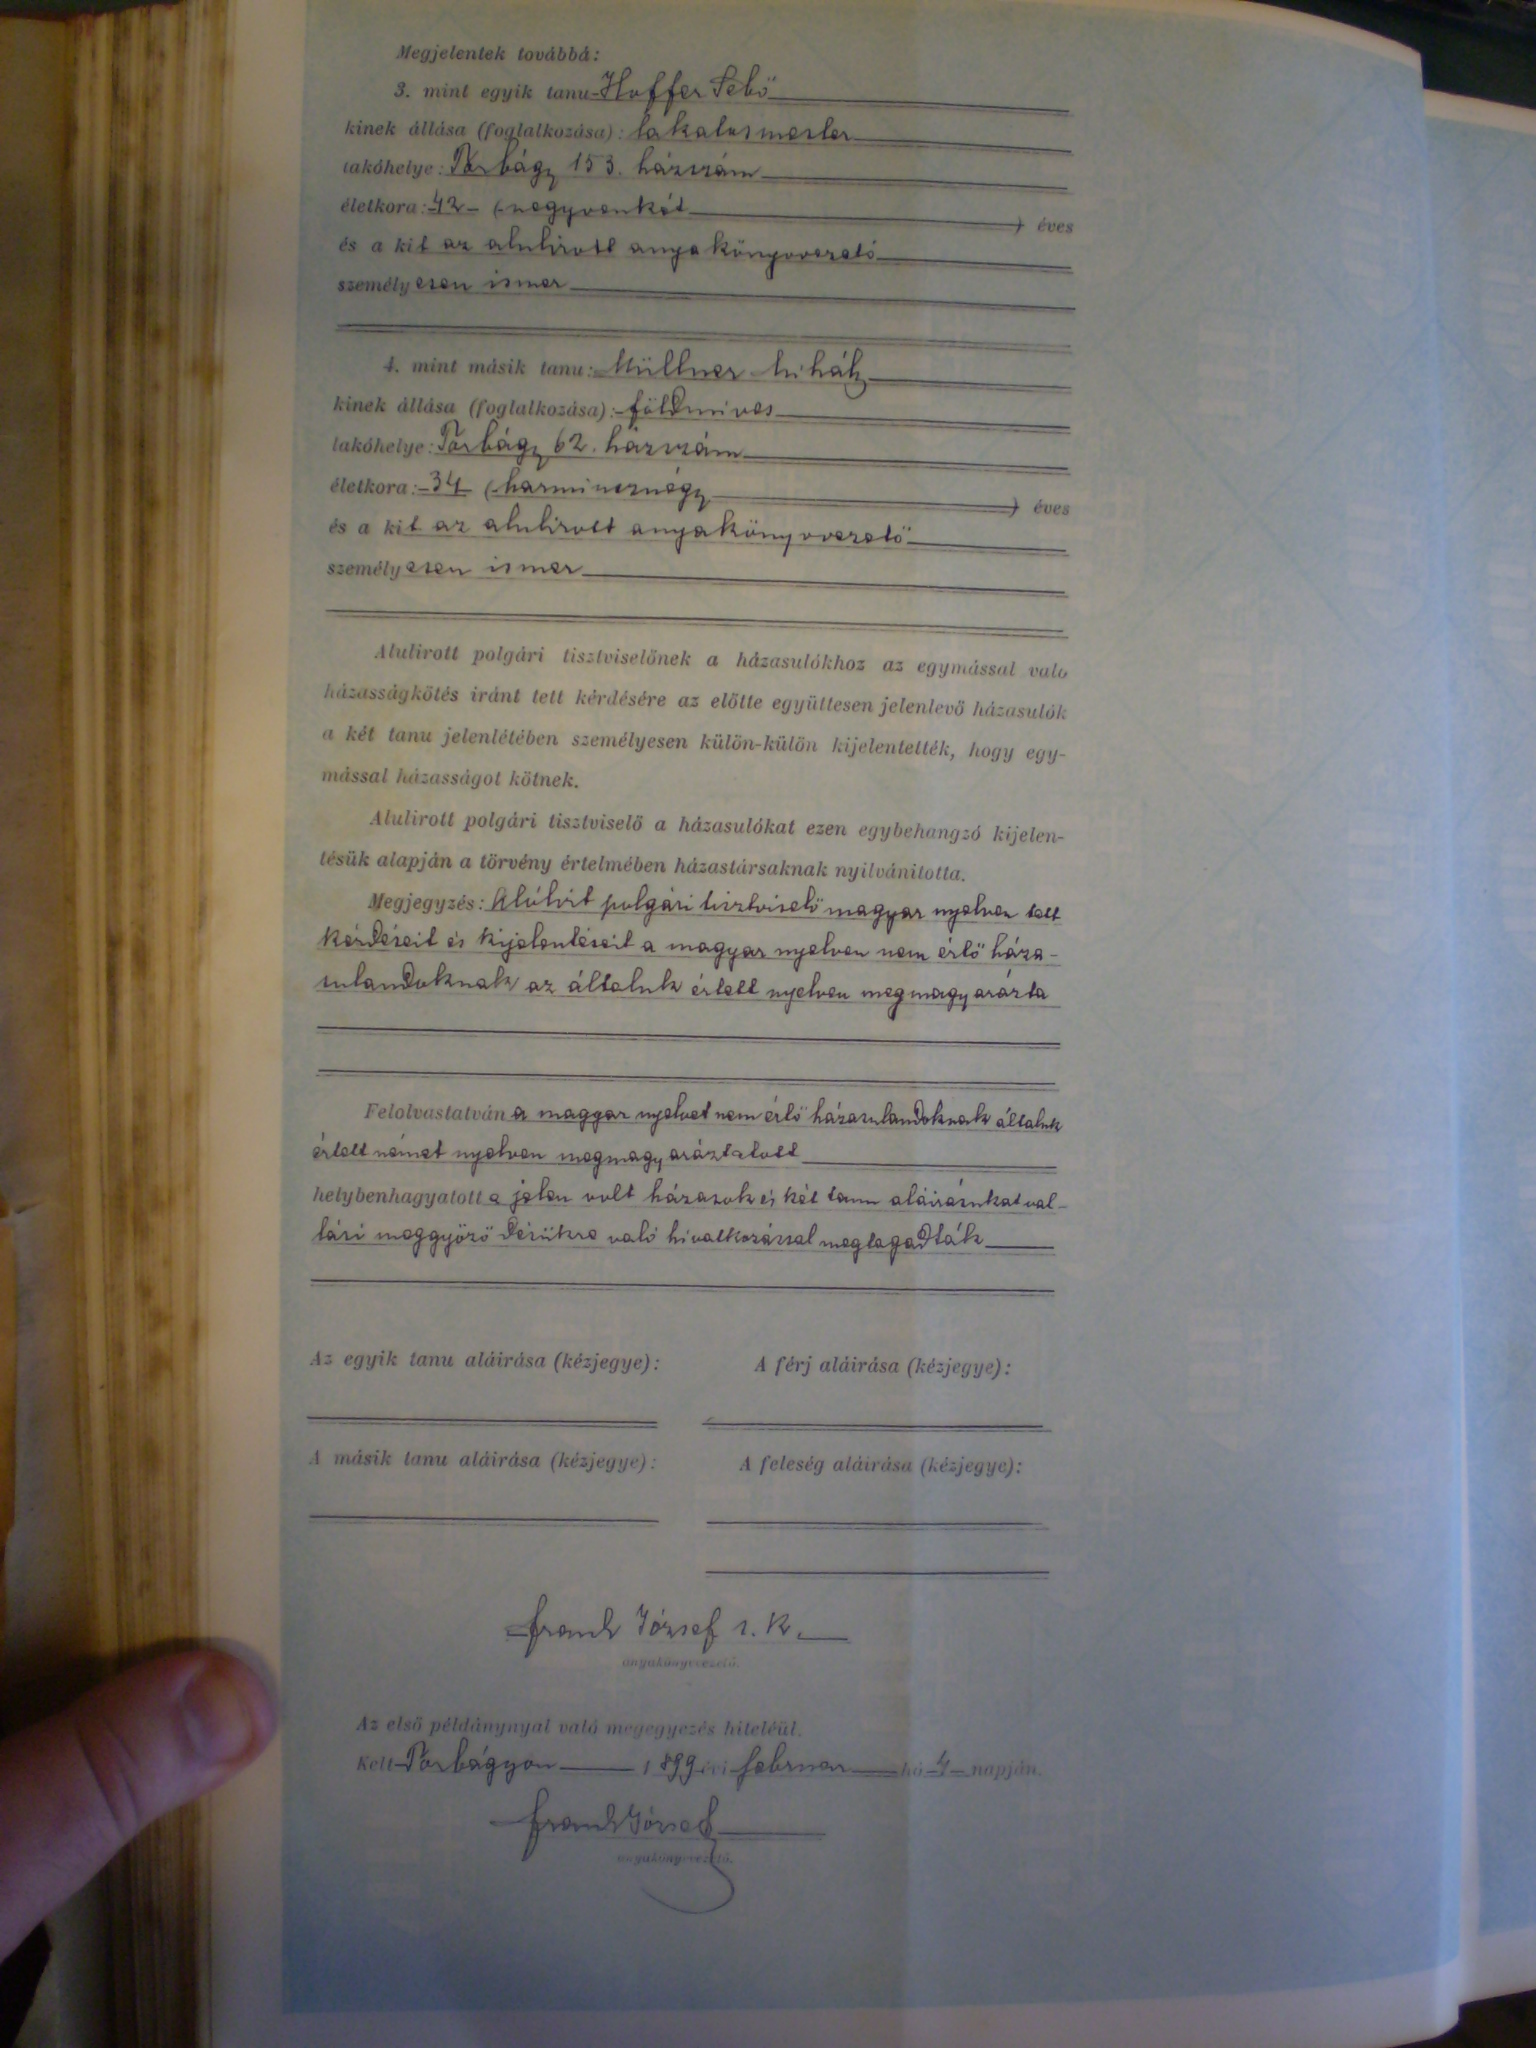 Megjelentek továbbá:
3. mint egyik tanu Hoffer Sebő
kinek állása (foglalkozása): lakatosmester
lakóhelye: Torbágy 153. házszám
életkora: 42 (negyvenkét ) éves
és a kit az alulirott anyakönyvvezető
személyesen ismer
4. mint másik tanu: Müllner Mihály
kinek állása (foglalkozása): földmives
lakóhelye: Torbágy 62. házszám
életkora: 34 (harmincznégy ) éves
és a kit az alulirott anyakönyvvezető
személyesen ismer
Alulirott polgári tisztviselőnek a házasulókhoz az egymással való
házasságkötés iránt tett kérdésére az előtte együttesen jelenlevő házasulók
a két tanu jelenlétében személyesen külön-külön kijelentették, hogy egy-
mással házasságot kötnek.
Alulirott polgári tisztviselő a házasulókat ezen egybehangzó kijelen-
tésük alapján a törvény értelmében házastársaknak nyilvánította.
Megjegyzés: Alúlirt polgári tisztviselő magyar nyelven tett
kérdéseit és kijelentéseit a magyar nyelven nem értő háza-
sulandoknak az általuk értett nyelven megmagyarázta
Felolvastatván a magyar nyelvet nem értő házasulandoknak általuk
értett német nyelven megmagyaráztatott
helybenhagyatott a jelen volt házasok és két tanu aláirásukat val-
lási meggyőződésükre való hivatkozással megtagadták
Az egyik tanu aláirása (kézjegye): A férj aláirása (kézjegye):
A másik tanu aláirása (kézjegye): A feleség aláirása (kézjegye):
Frank József s. k.
anyakönyvvezető.
Az első példánynyal való megegyezés hiteléül.
Kelt Torbágyon 1899 évi februar hó 4 napján.
Frank József
anyakönyvvezető.